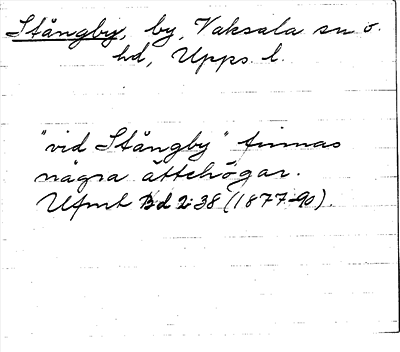 Stångby, by, Vaksala sn o.
hd, Upps. l.
"vid Stångby" finnas
några ättehögar.
Ufmt Bd 2:38 (1877-90).